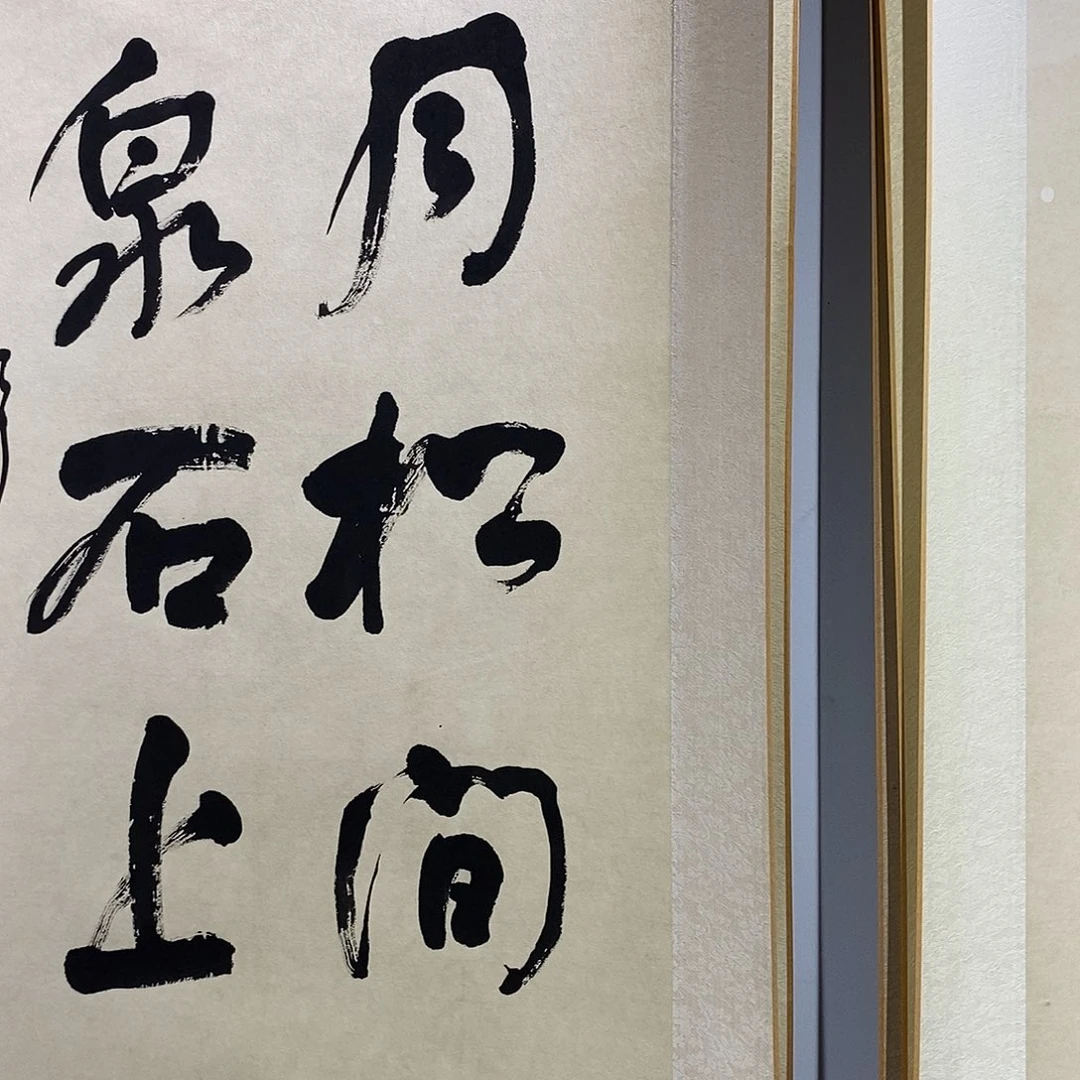 月松間
泉石上